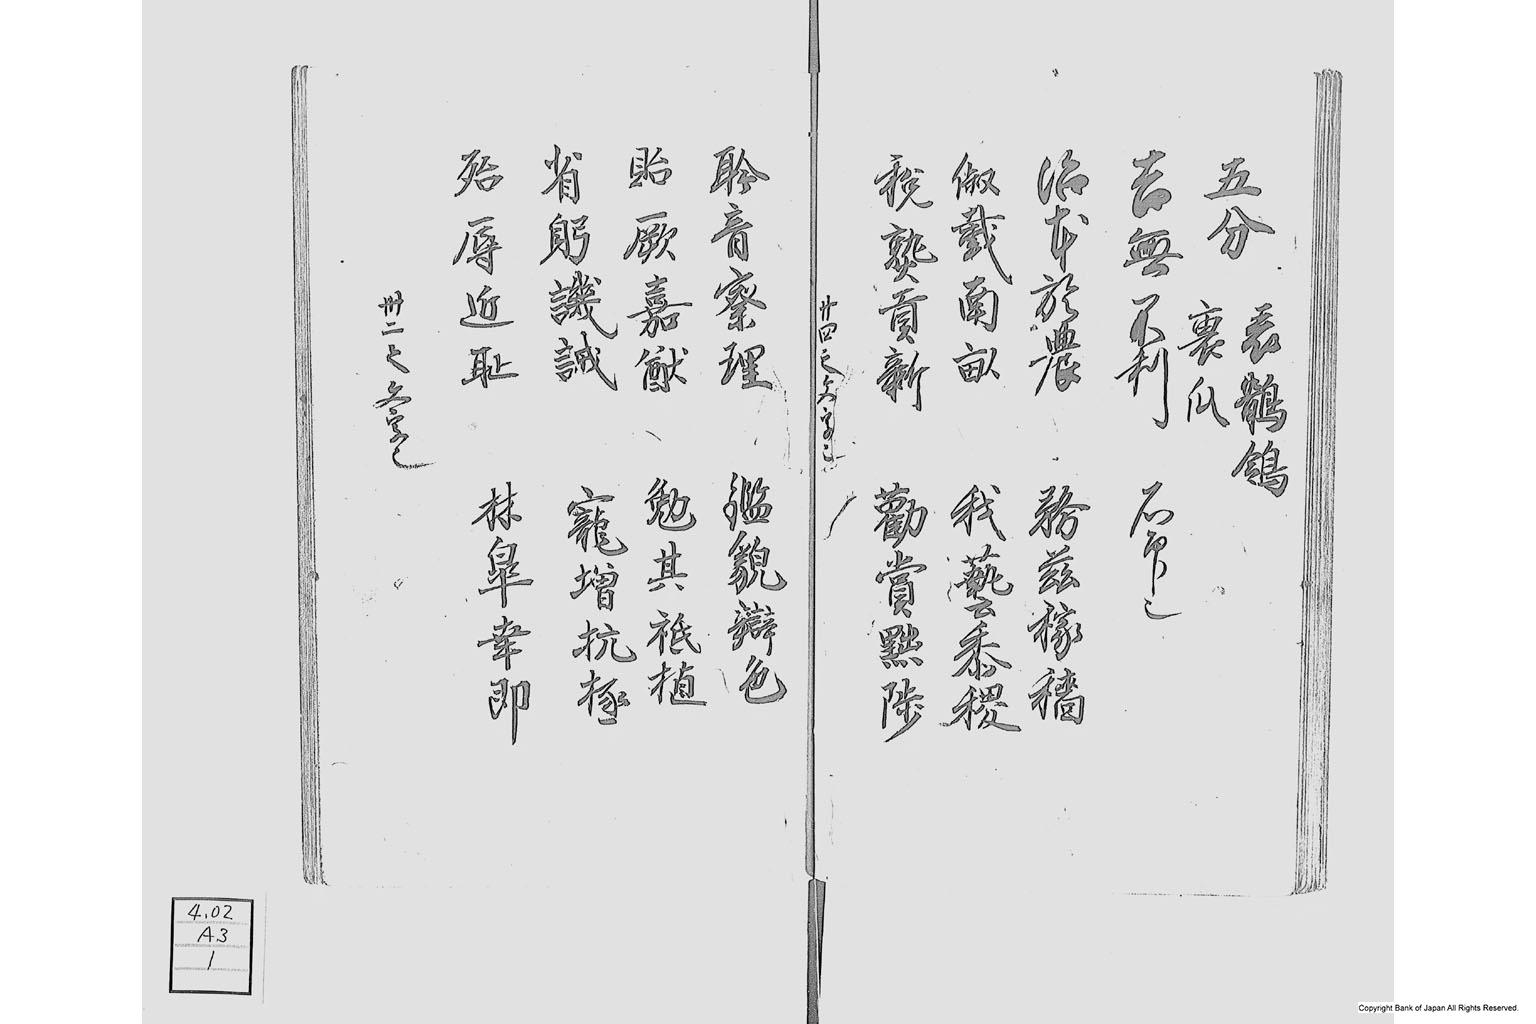 五分 表鶺鴒
裏瓜
吉無不利 石印也
治本於農 務茲稼穡
俶載南畝 我藝黍稷
税熟貢新 勸賞黜陟
廿四之文字也
聆音察理 鑑貌辯色
貽厥嘉猷 勉其祗植
省躬譏誡 寵增抗極
殆辱近恥 林皐幸即
卅二之文字也
4.02
A3
1
Copyright Bank of Japan All Rights Reserved.